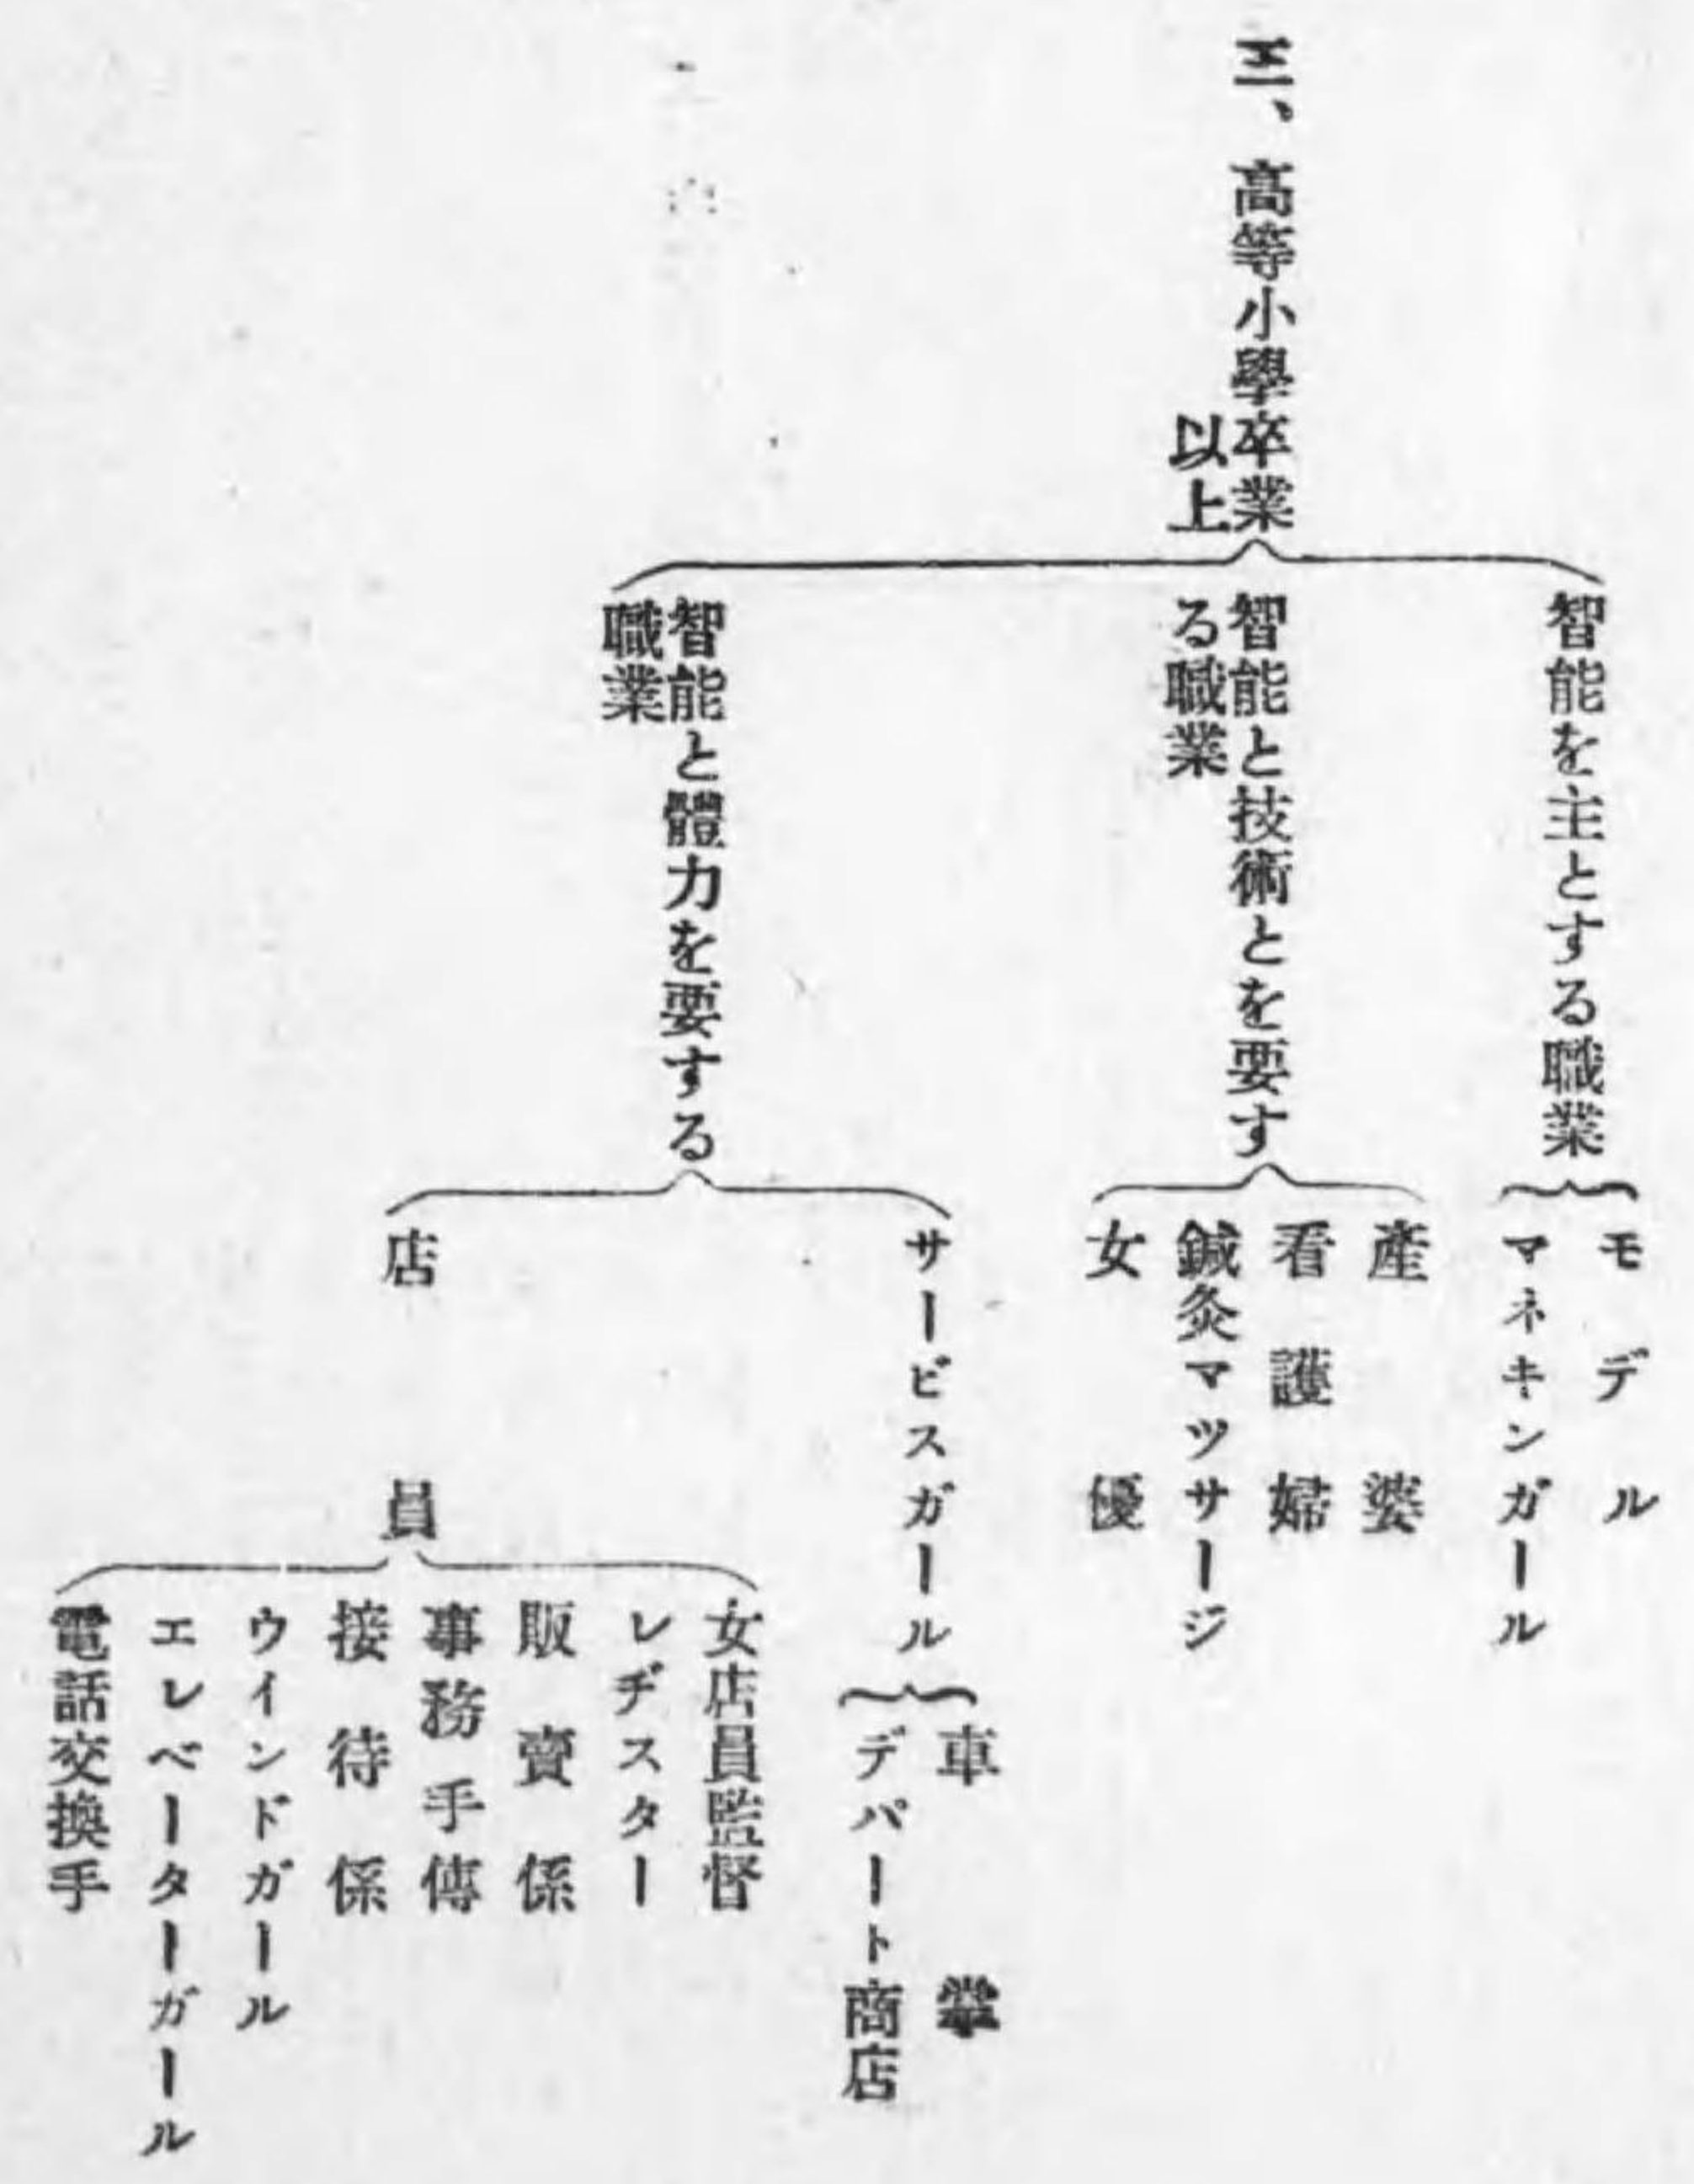 三、高等小學卒業
以上
智能を主とする職業
モデル
マネキンガール
智能と技術とを要す
る職業
產婆
看護婦
鍼灸マツサージ
女優
智能と體力を要する
職業
サービスガール
車掌
デパート商店
店員
女店員監督
レヂスター
販賣係
事務手傳
接待係
ウインドガール
エレベーターガール
電話交換手